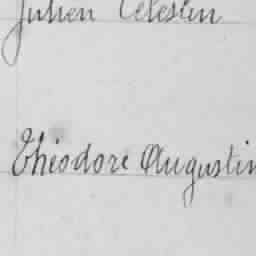 Julien Célestin
Théodore Augustin